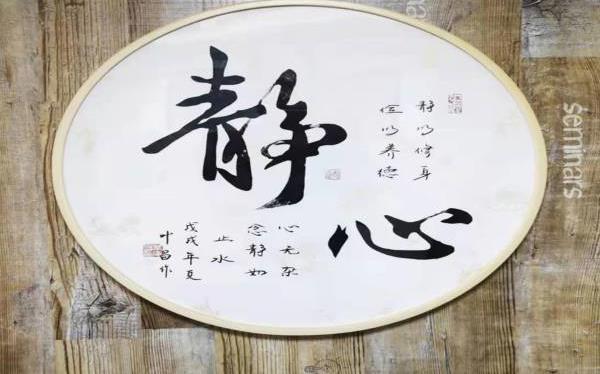 静心
静以修身
俭以养德
心无杂
念静如
止水
戊戌年夏
叶昌作
seminars